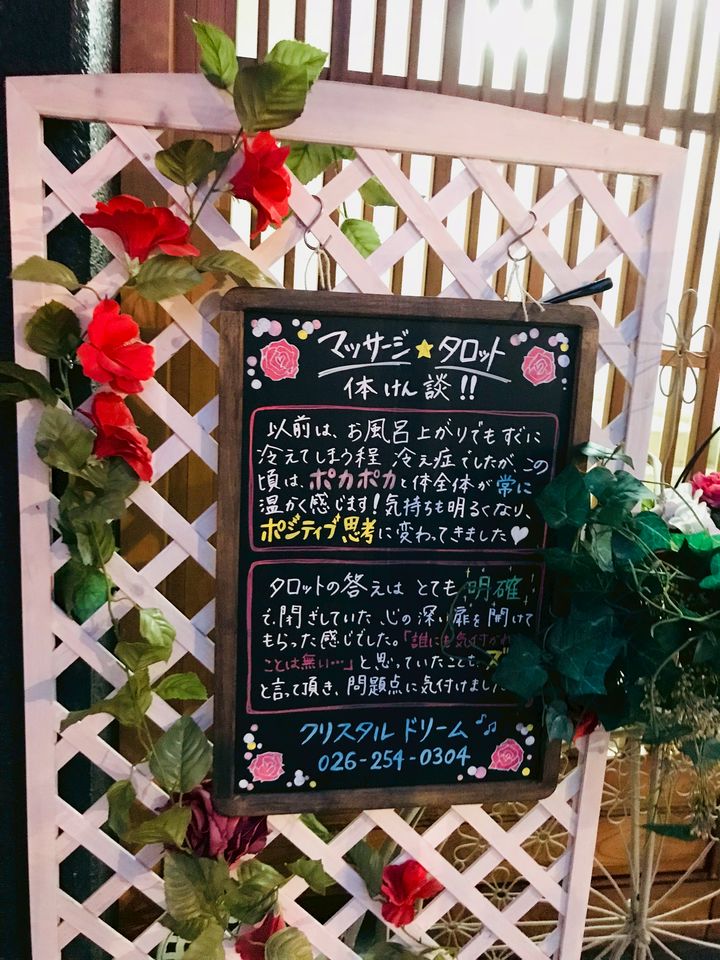 マッサージ★タロット
体けん談!!
以前は、お風呂上がりでもすぐに
冷えてしまう程 冷え症でしたが、この
頃は、ポカポカと体全体が常に
温かく感じます!気持ちも明るくなり、
ポジティブ思考に変わってきました♡
タロットの答えは とても 明確
で、閉ざしていた 心の深い扉を開けて
もらった感じでした。「誰にも気付かれ
ことは無い…」と思っていたことも、ズ
と言って頂き、問題点に気付けました
クリスタル ドリーム♪♫
026-254-0304